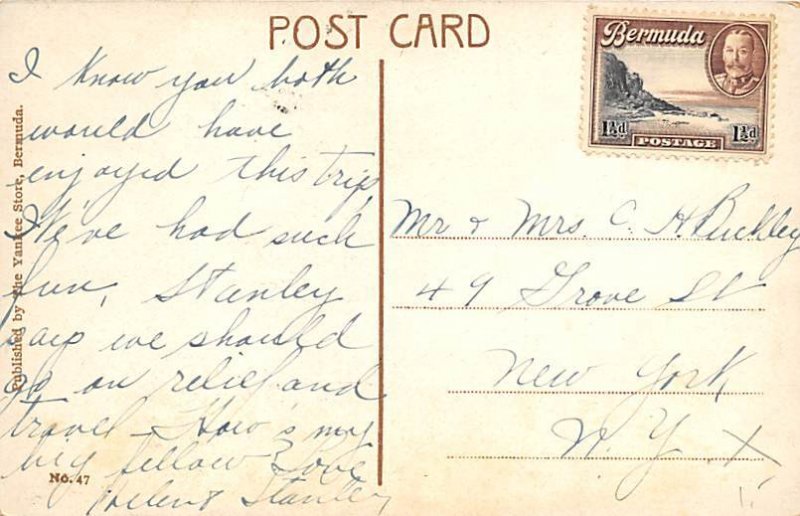 POST CARD
I know you both
would have
enjoyed this trip,
We've had such
fun, Stanley
says we should
go on relief and
travel - How's my
big fellow? Love
Helen & Stanley
Published by the Yankee Store, Bermuda.
No. 47
Bermuda
1½d 1½d
POSTAGE
Mr & Mrs. C. H Buckley
49 Grove St
New York
N. Y.